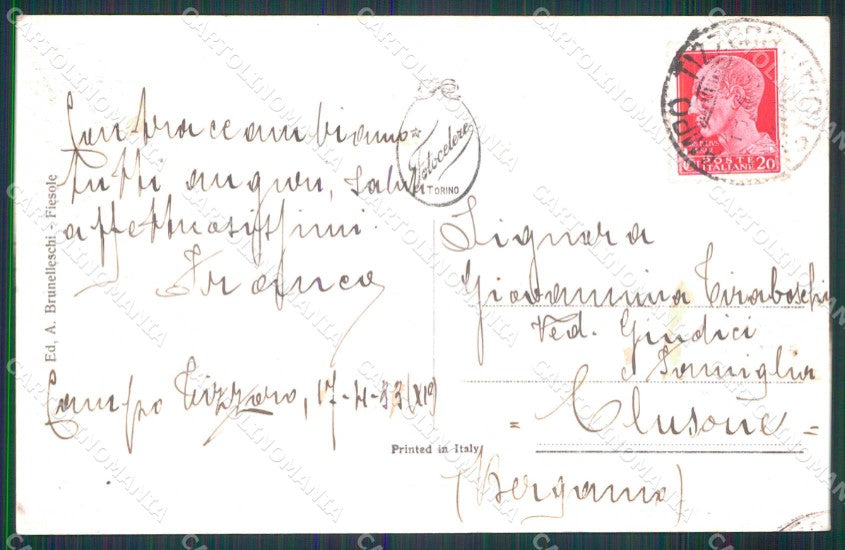 Contraccambiamo
tutti auguri, saluti
affettuosissimi
Franca
Campo Tizzoro, 17-4-33 (XIº)
Ed. A. Brunelleschi - Fiesole
Fotocelere
TORINO
Printed in Italy
CAMPO TIZZORO
POSTE
ITALIANE 20
Signora
Giovannina Tiraboschi
Ved. Giudici
e Famiglia
= Clusone =
(Bergamo)
CARTOLINOMANIA